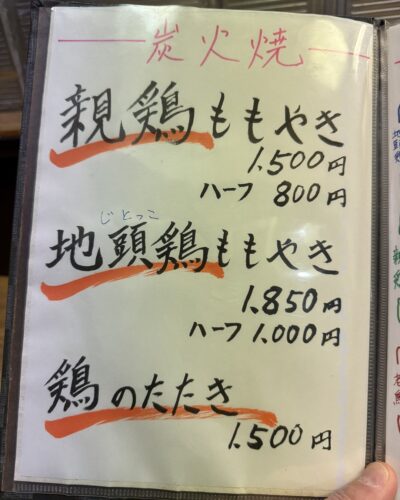 炭火焼
親鶏ももやき
1.500円
ハーフ 800円
じとっこ
地頭鶏ももやき
1.850円
ハーフ 1.000円
鶏のたたき
1.500円